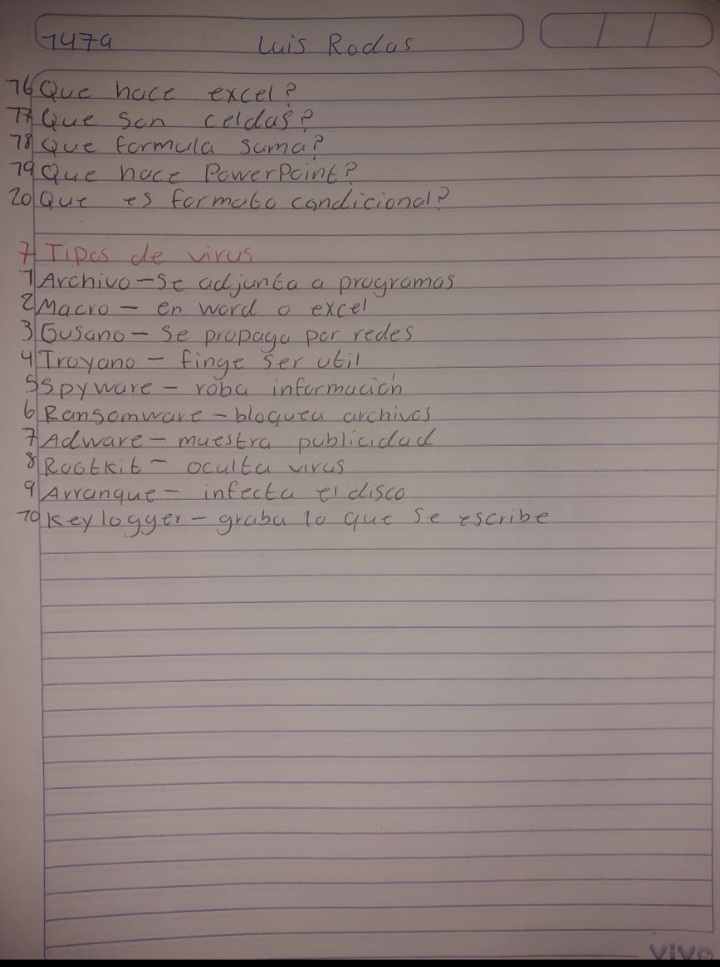 1479 Luis Rodas
16 Que hace excel?
17 Que son celdas?
18 Que formula suma?
19 Que hace PowerPoint?
20 Que es formato condicional?
7 Tipos de virus
1 Archivo - se adjunta a programas
2 Macro - en word o excel
3 Gusano - se propaga por redes
4 Troyano - finge ser util
5 Spyware - roba información
6 Ransomware - bloquea archivos
7 Adware - muestra publicidad
8 Rootkit - oculta virus
9 Arranque - infecta el disco
10 Keylogger - graba lo que se escribe
vivo